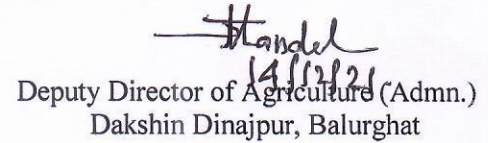 14/12/21
Deputy Director of Agriculture (Admn.)
Dakshin Dinajpur, Balurghat